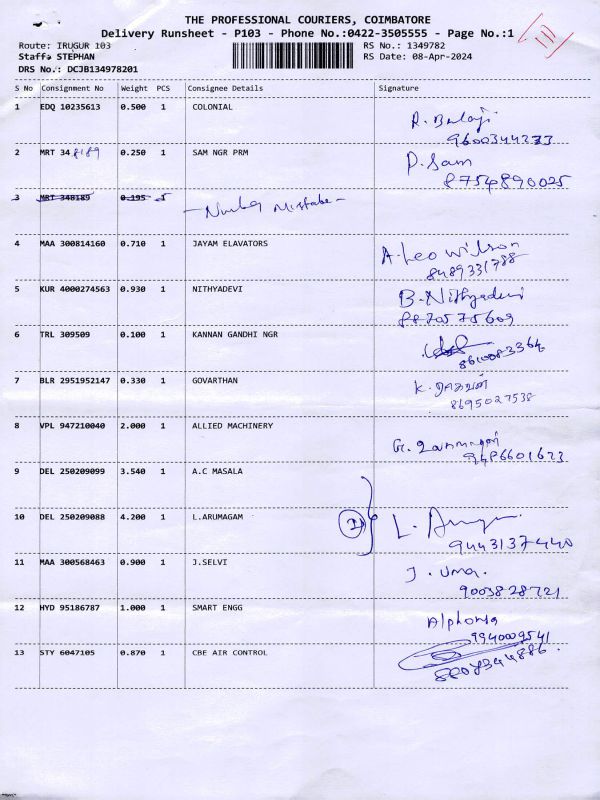 THE PROFESSIONAL COURIERS, COIMBATORE
Delivery Runsheet - P103 - Phone No.:0422-3505555 - Page No.:1
Route: IRUGUR 103 RS No.: 1349782
Staff: STEPHAN RS Date: 08-Apr-2024
DRS No.: DCJB134978201
S No Consignment No Weight PCS Consignee Details Signature
1 EDQ 10235613 0.500 1 COLONIAL R. Balaji
9600344233
2 MRT 348189 0.250 1 SAM NGR PRM P. Sam
8754890025
3 MRT 340189 0.195 1 - Number Mistake -
4 MAA 300814160 0.710 1 JAYAM ELAVATORS A. Leo Wilson
8489331788
5 KUR 4000274563 0.930 1 NITHYADEVI B. Nithyadevi
8870575609
6 TRL 309509 0.100 1 KANNAN GANDHI NGR
8610083364
7 BLR 2951952147 0.330 1 GOVARTHAN K.
8695027538
8 VPL 947210040 2.000 1 ALLIED MACHINERY G.
9486601673
9 DEL 250209099 3.540 1 A.C MASALA
10 DEL 250209088 4.200 1 L.ARUMAGAM 2 L.
9443137440
11 MAA 300568463 0.900 1 J.SELVI J. Uma.
9003828721
12 HYD 95186787 1.000 1 SMART ENGG Alphonsa
9940009541
13 STY 6047105 0.870 1 CBE AIR CONTROL